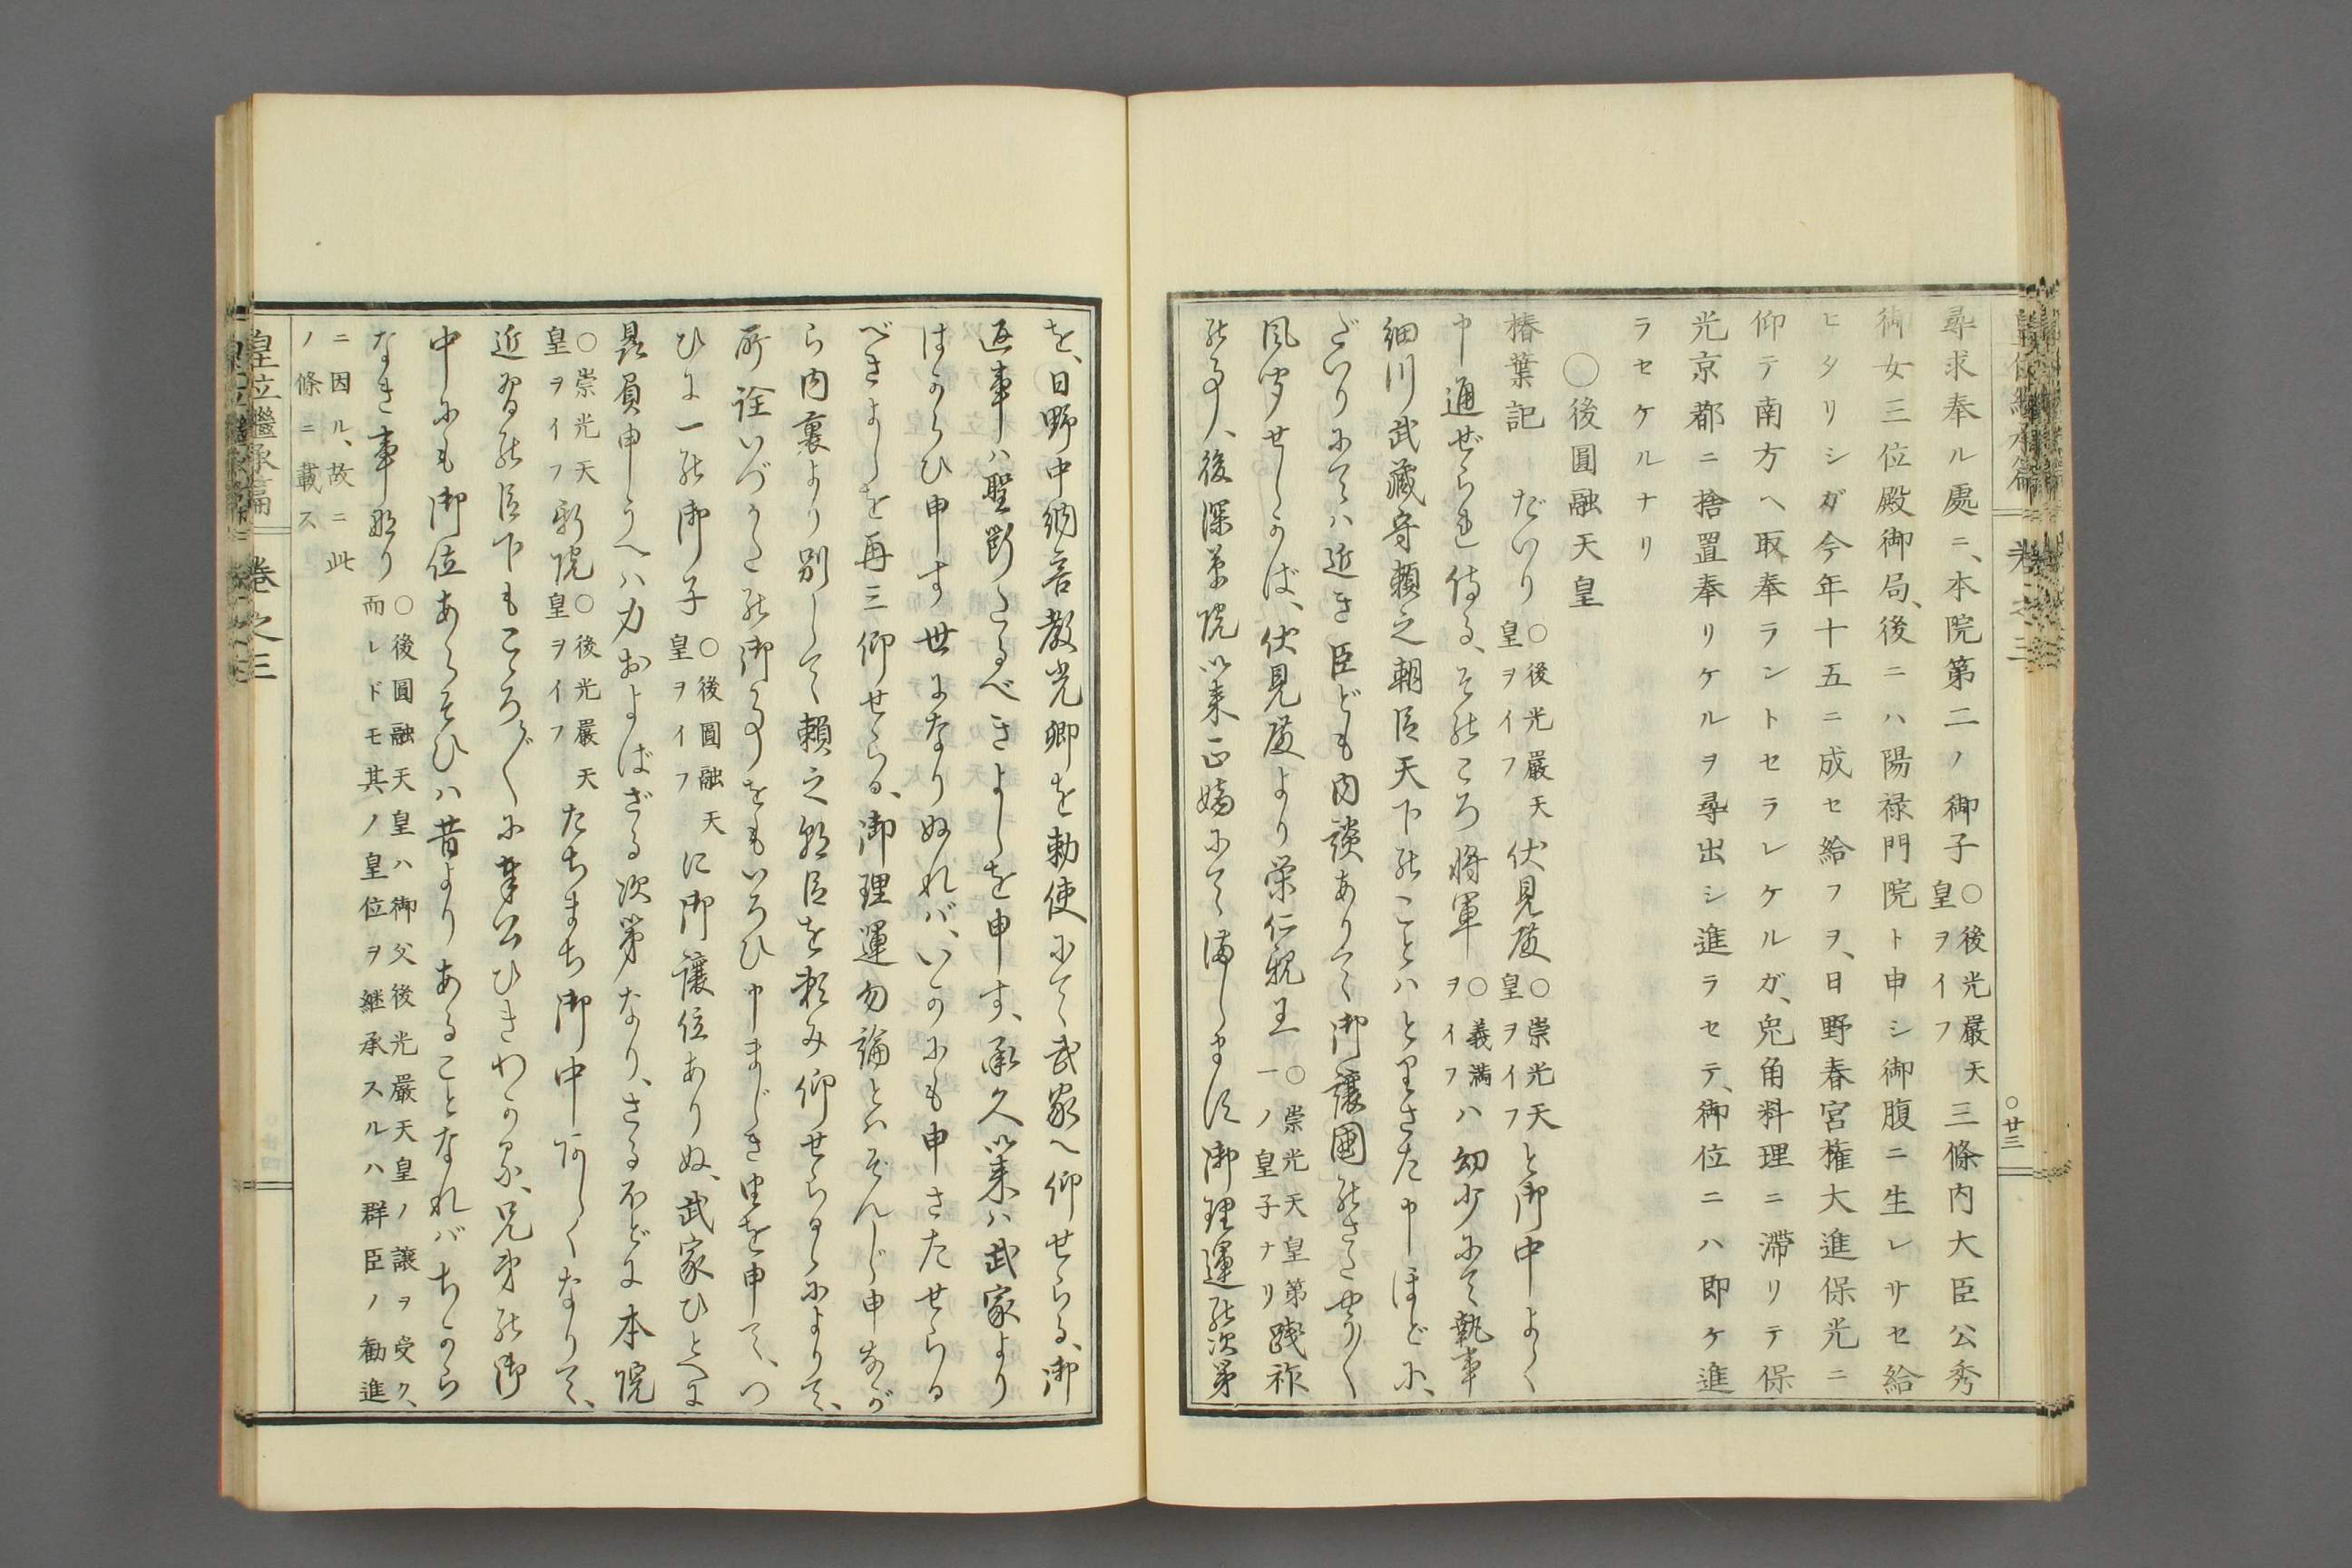 尋求奉ル處ニ、本院第二ノ御子○後光嚴天皇ヲイフ三條内大臣公秀
御女三位殿御局、後ニハ陽禄門院ト申シ御腹ニ生レサセ給
ヒタリシガ今年十五ニ成セ給フヲ、日野春宮權大進保光ニ
仰テ南方ヘ取奉ラントセラレケルガ、兎角料理ニ滯リテ保
光京都ニ捨置奉リケルヲ尋出シ進ラセテ、御位ニハ即ケ進
ラセケルナリ
○後圓融天皇
椿葉記 だいり○後光嚴天皇ヲイフ伏見殿○崇光天皇ヲイフと御中よく
申通ぜられ侍る、その比ころ將軍○義滿ヲイフハ幼少にて執事
細川武藏守頼之朝臣天下のことハとりさた申ほどに、
だいりにてハ近き臣ども内談ありて御讓國のさたやう〳〵
風聞せしかば、伏見殿より榮仁親王○崇光天皇第一ノ皇子ナリ踐祚
の事、後深草院以来正嫡にて満します御理運の次第
を、日野中納言教光卿を勅使にて武家へ仰せらる、御
返事ハ聖断たるべきよしを申す、承久以来ハ武家より
はからひ申す世になりぬれバ、いかにも申さたせらる
べきよしを再三仰せらる、御理運勿論とハぞんじ申ながら
内裏より別して頼之朝臣を頼み仰せらるゝによりて、
所詮いづかたの御事をもいろひ申まじき由を申て、つ
ひに一の御子○後圓融天皇ヲイフに御讓位ありぬ、武家ひとへに
贔負申うへハ力およばざる次第なり、さるほどに本院
○崇光天皇ヲイフ新院○後光嚴天皇ヲイフたちまち御中あしくなりて、
近習の臣下もこゝろ〴〵に奉公ひきわかる、兄弟の御
中にも御位あらそひハ昔よりあることなれバちから
なき事なり○後圓融天皇ハ御父後光嚴天皇ノ讓ヲ受ク、而レドモ其ノ皇位ヲ継承スルハ群臣ノ勸進
ニ因ル、故ニ此ノ條ニ載ス
皇位繼承篇 卷之三
皇位繼承篇 卷之三 ○廿三